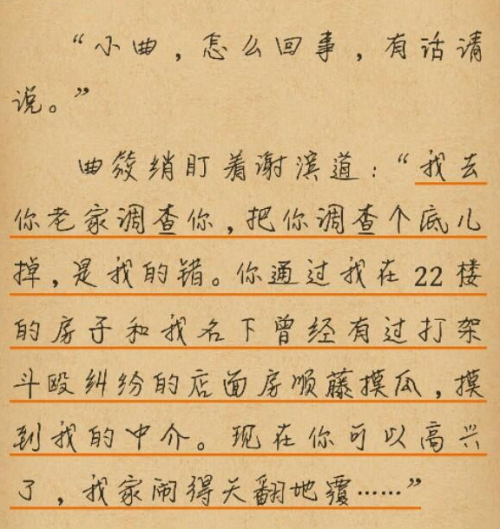 “小曲，怎么回事，有话请
说。”
曲筱绡盯着谢滨道：“我去
你老家调查你，把你调查个底儿
掉，是我的错。你通过我在22楼
的房子和我名下曾经有过打架
斗殴纠纷的店面房顺藤摸瓜，摸
到我的中介。现在你可以高兴
了，我家闹得天翻地覆……”